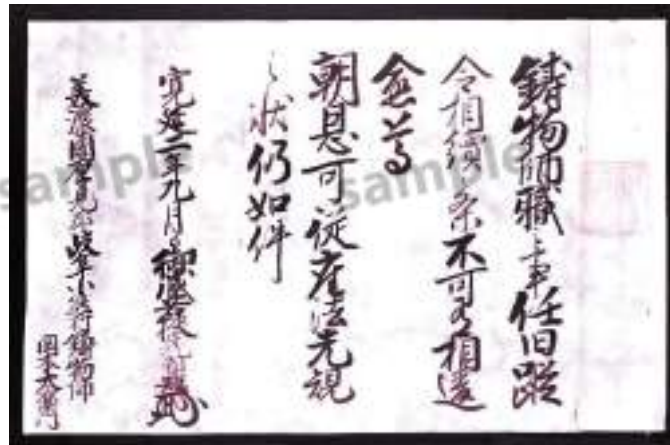 鋳物師職之事任旧蹤
令相続条不可有相違
愈善
朝恩可従座法先規
之状仍如件
寛延二年九月
美濃国 岐阜小熊村鋳物師
岡本太右衛門
sample
sample